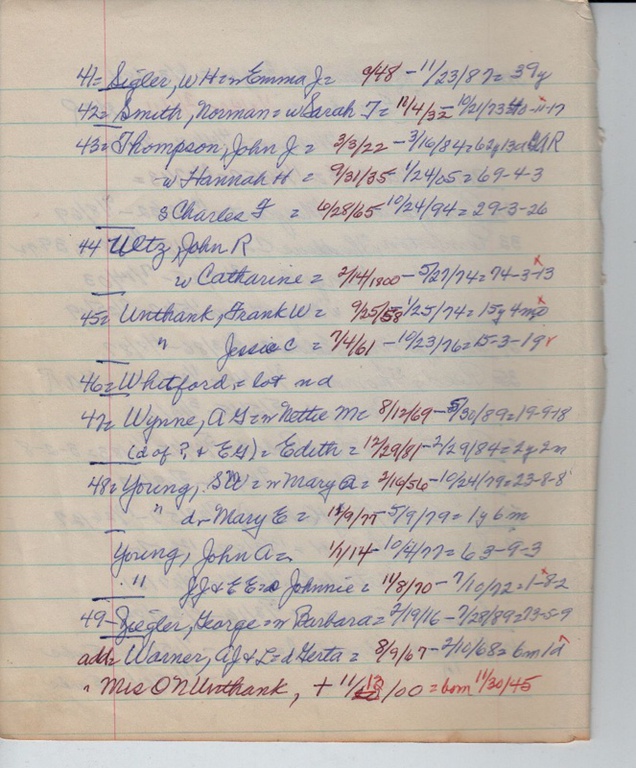 41= Sigler, W H = w Emma J = 9/48 - 11/23/87 = 39y
42= Smith, Norman = w Sarah T = 11/4/32 - 10/21/73 = -11-17
43= Thompson, John J = 3/3/22 - 3/16/84 = 62y 13d R
w Hannah H = 9/31/35 1/24/05 = 69-4-3
s Charles F = 6/28/65 10/24/94 = 29-3-26
44 Utz, John R
w Catharine = 2/14/1800 - 5/27/74 = 74-3-13
45= Unthank, Frank W = 9/25/58 1/25/74 = 15y 4mo
" Jessie C = 7/4/61 - 10/23/76 = 15-3-19
46= Whitford = lot n d
47= Wynne, A G = w Nettie Mc 8/12/69 - 5/30/89 = 19-9-18
(d of ? & E G) = Edith = 12/29/81 - 2/29/84 = 2y 2m
48= Young, S W = w Mary A = 2/16/56 - 10/24/79 = 23-8-8
" d, Mary E = 11/9/77 - 5/9/79 = 1y 6m
Young, John A = 1/1/14 - 10/4/77 = 63-9-3
" J J & E E = Johnnie = 11/8/70 - 7/10/72 = 1-8-2
49- Ziegler, George = w Barbara = 2/19/16 - 7/28/89 = 73-5-9
add= Warner, A J & L = d Gerta = 8/9/67 - 2/10/68 = 6m 1d
" Mrs O N Unthank, + 11/12/00 = born 11/30/45